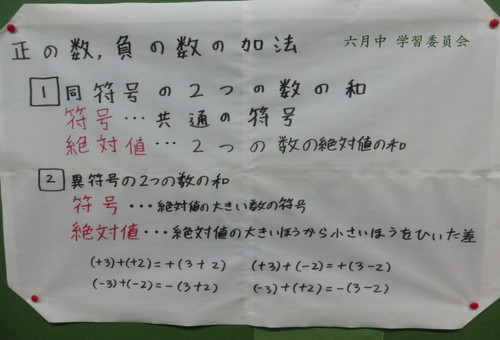 正の数,負の数の加法
六月中 学習委員会
1 同符号の2つの数の和
符号…共通の符号
絶対値…2つの数の絶対値の和
2 異符号の2つの数の和
符号・・・絶対値の大きい数の符号
絶対値・・・絶対値の大きいほうから小さいほうをひいた差
(+3)+(+2)=+(3+2) (+3)+(-2)=+(3-2)
(-3)+(-2)=-(3+2) (-3)+(+2)=-(3-2)